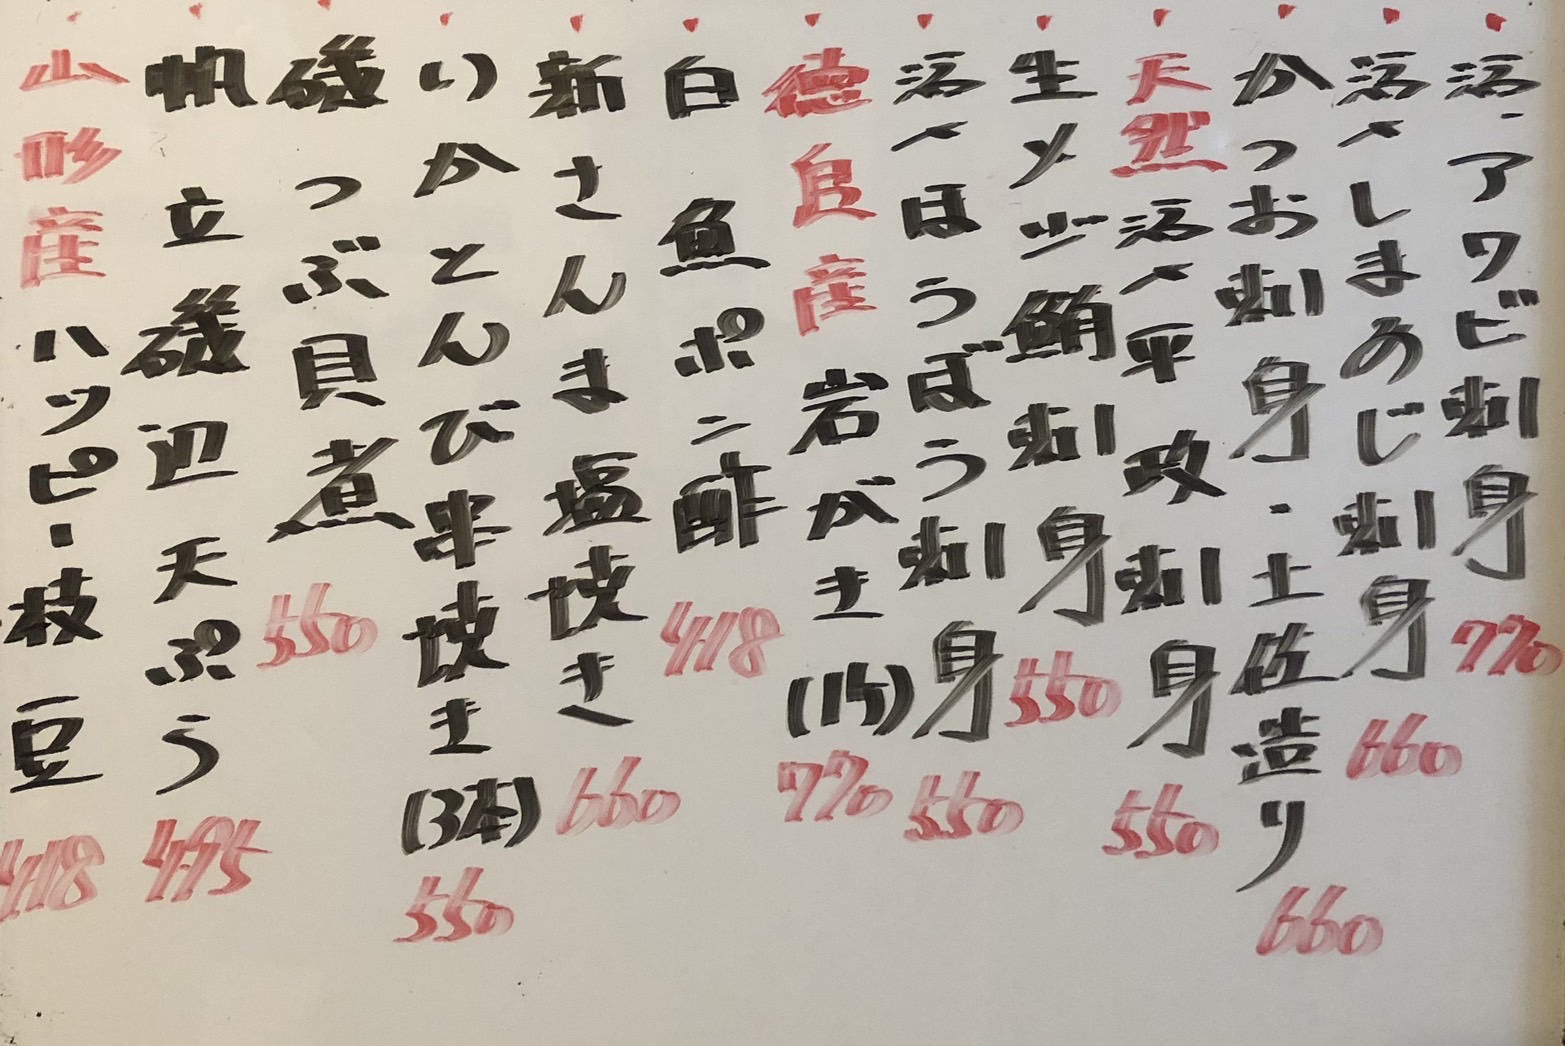 活・アワビ刺身 770
活〆しまあじ刺身 660
かつお刺身・土佐造り 660
天然活〆平政刺身 550
生メジ鮪刺身 550
活〆ほうぼう刺身 550
徳島産岩がき(1ケ) 770
白魚ポン酢 418
新さんま塩焼き 660
いかとんび串焼き(3本) 550
磯つぶ貝煮 550
帆立磯辺天ぷら 495
山形産ハッピー枝豆 418